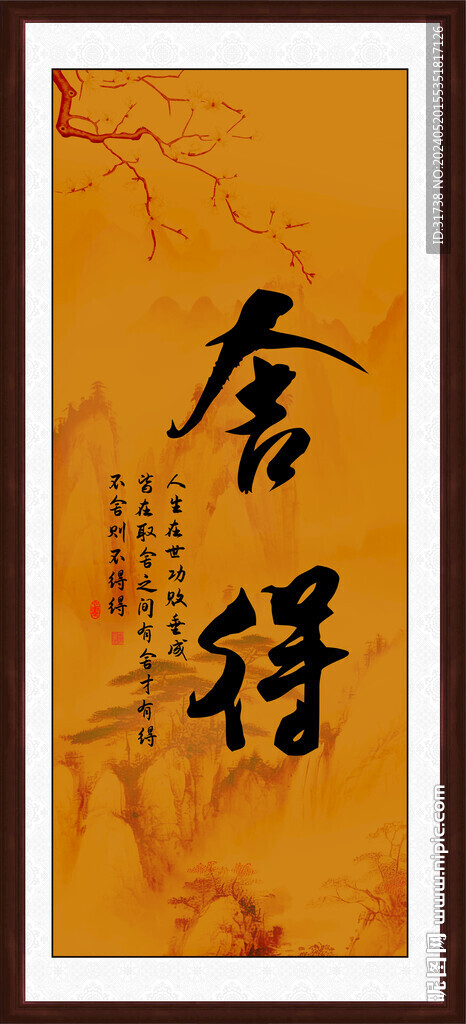 舍得
人生在世功败垂成
皆在取舍之间有舍才有得
不舍则不得得
ID:31738 NO:20240520155351817126
昵图网 www.nipic.com